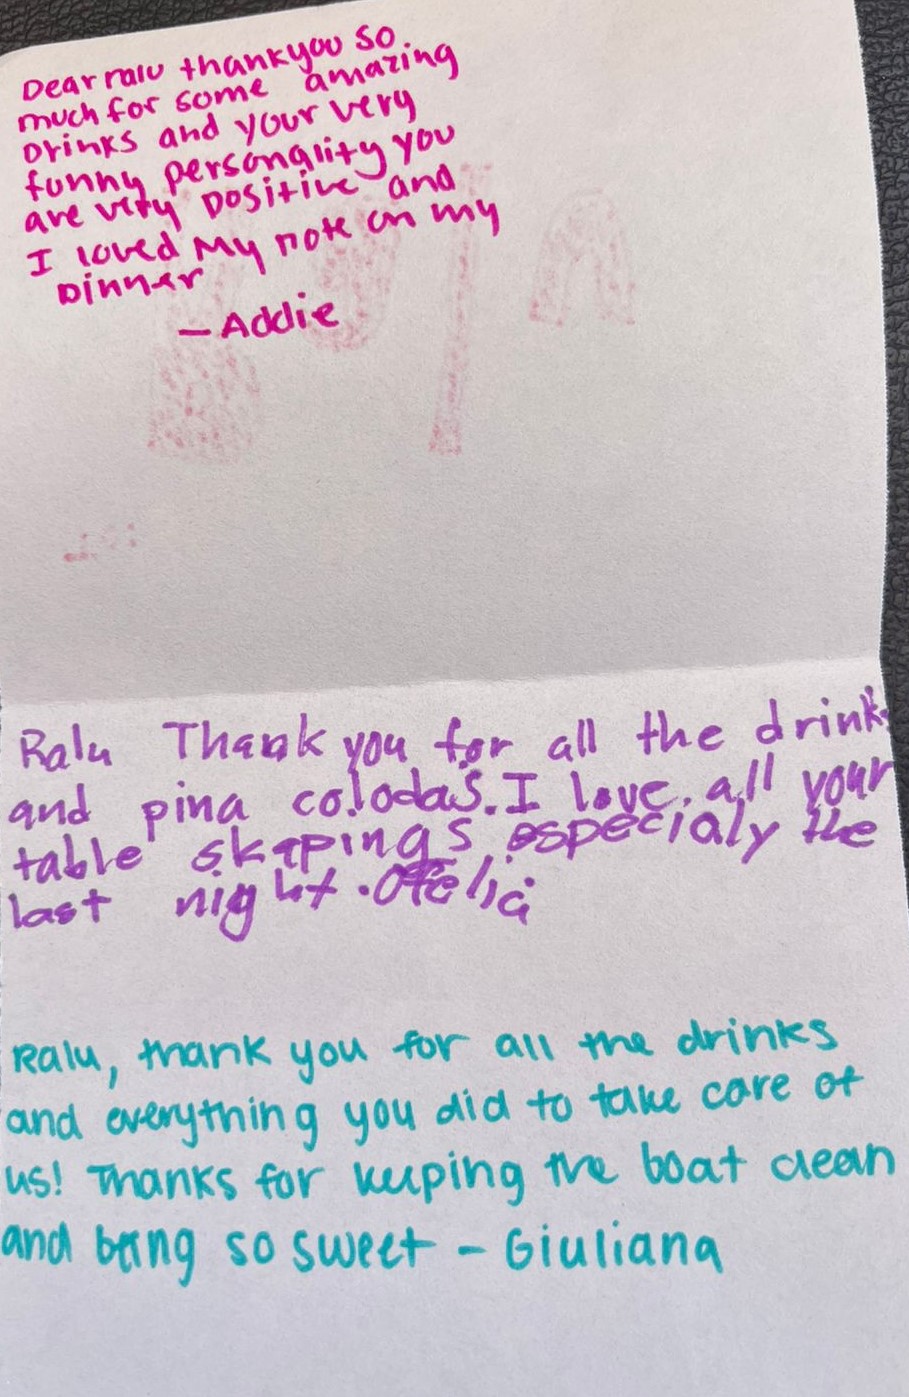 Dear ralu thankyou so
much for some amazing
Drinks and your very
funny personality you
are very positive and
I loved My note on my
Dinner
- Addie
Ralu Thank you for all the drinks
and pina colodas. I love all your
table skapings especialy the
last night. Ofelia
Ralu, thank you for all the drinks
and everything you did to take care of
us! Thanks for keeping the boat clean
and being so sweet - Giuliana